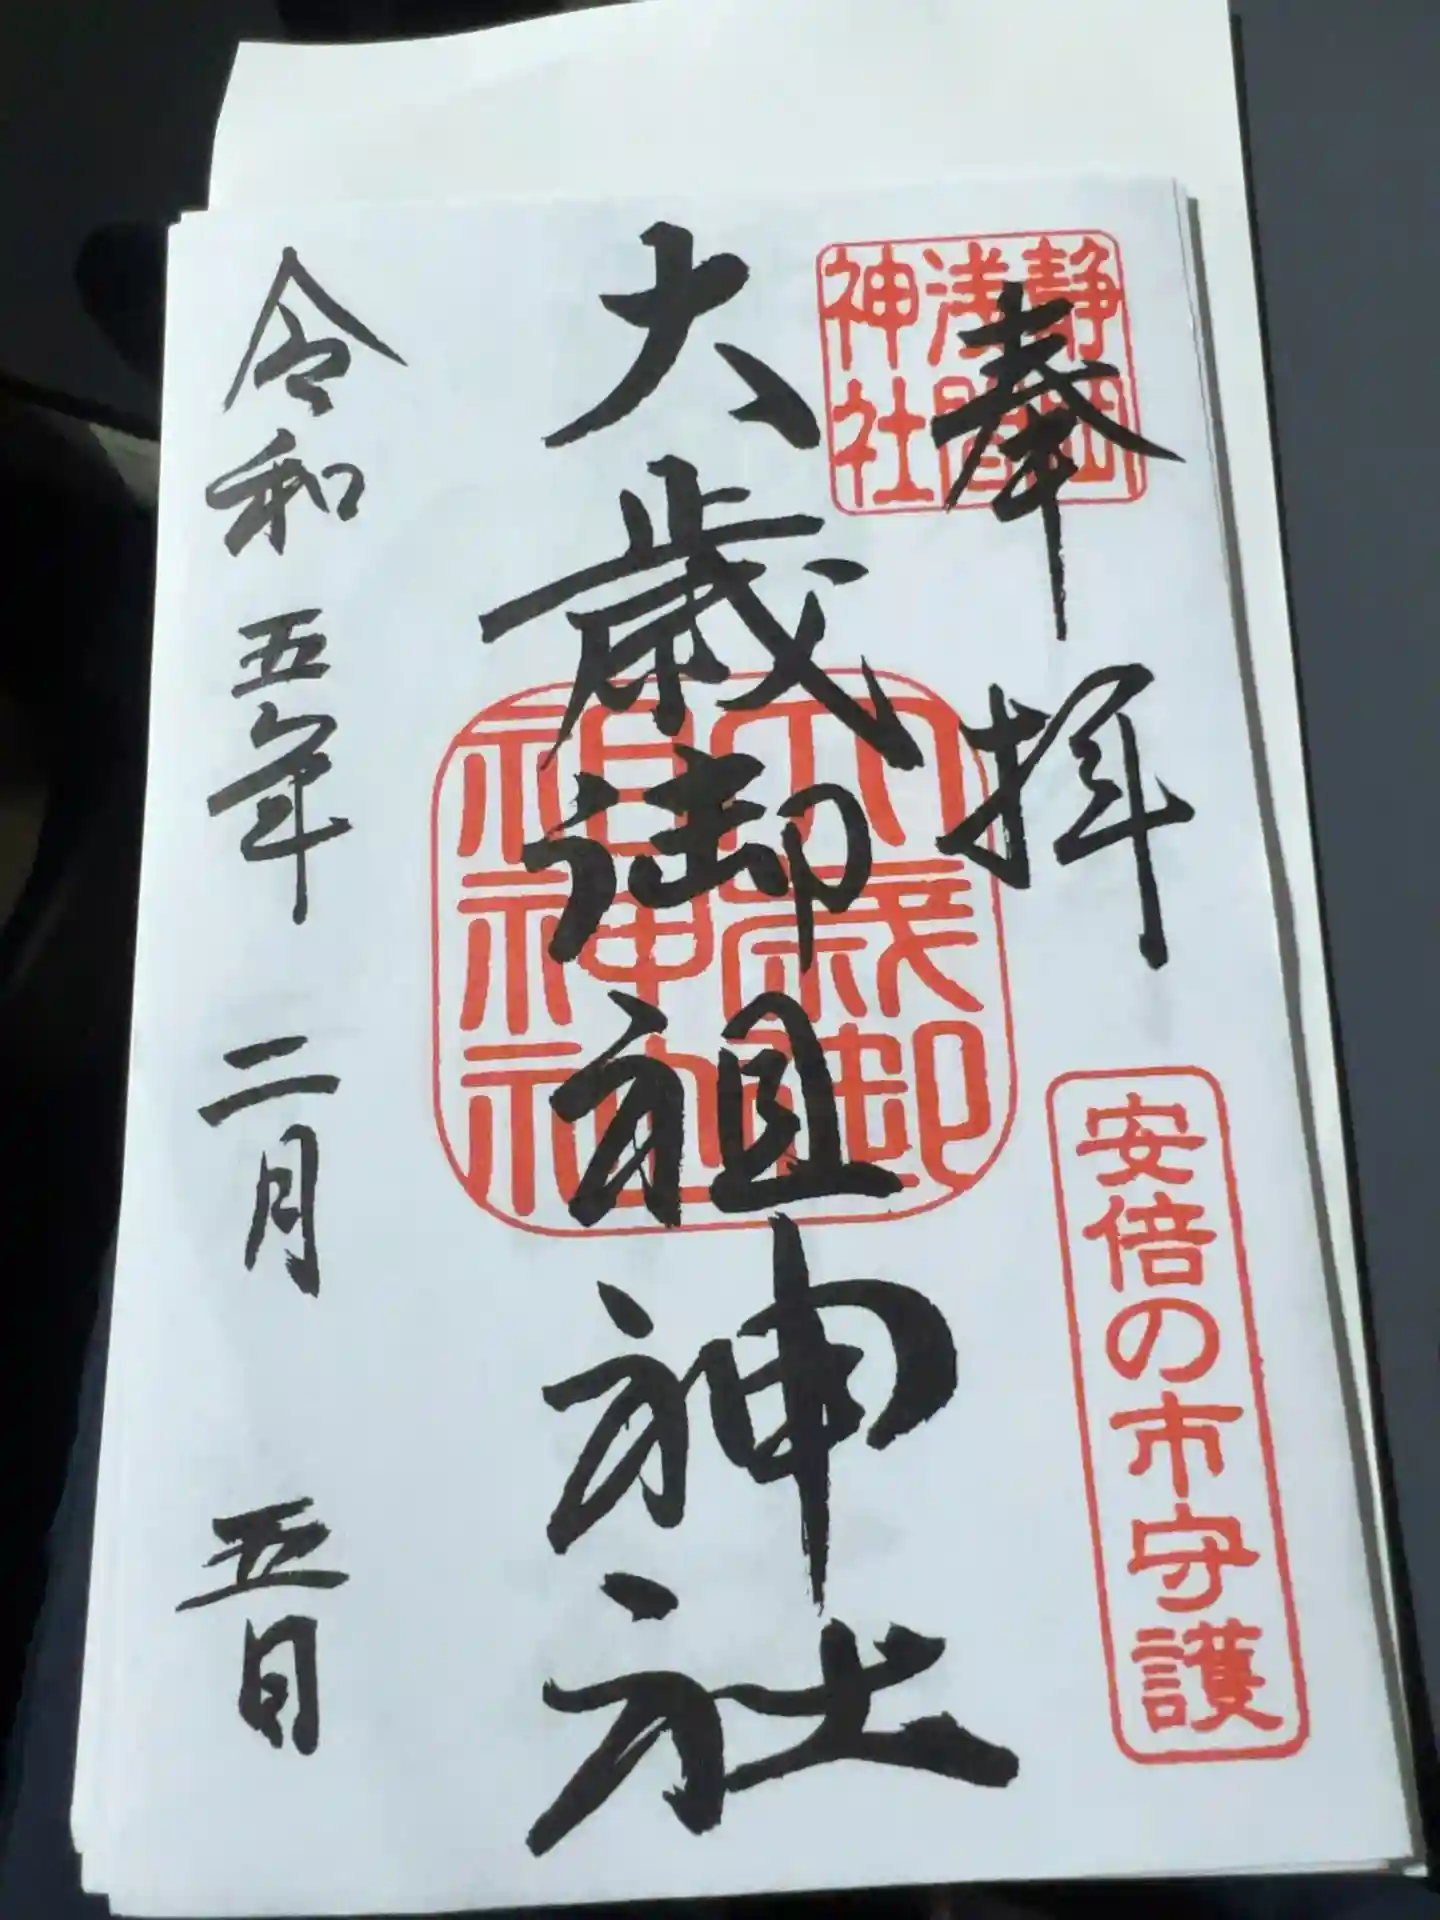 奉拝
静岡
浅間
神社
安倍の市守護
大歳御祖神社
大歳御
祖神社
令和五年二月五日